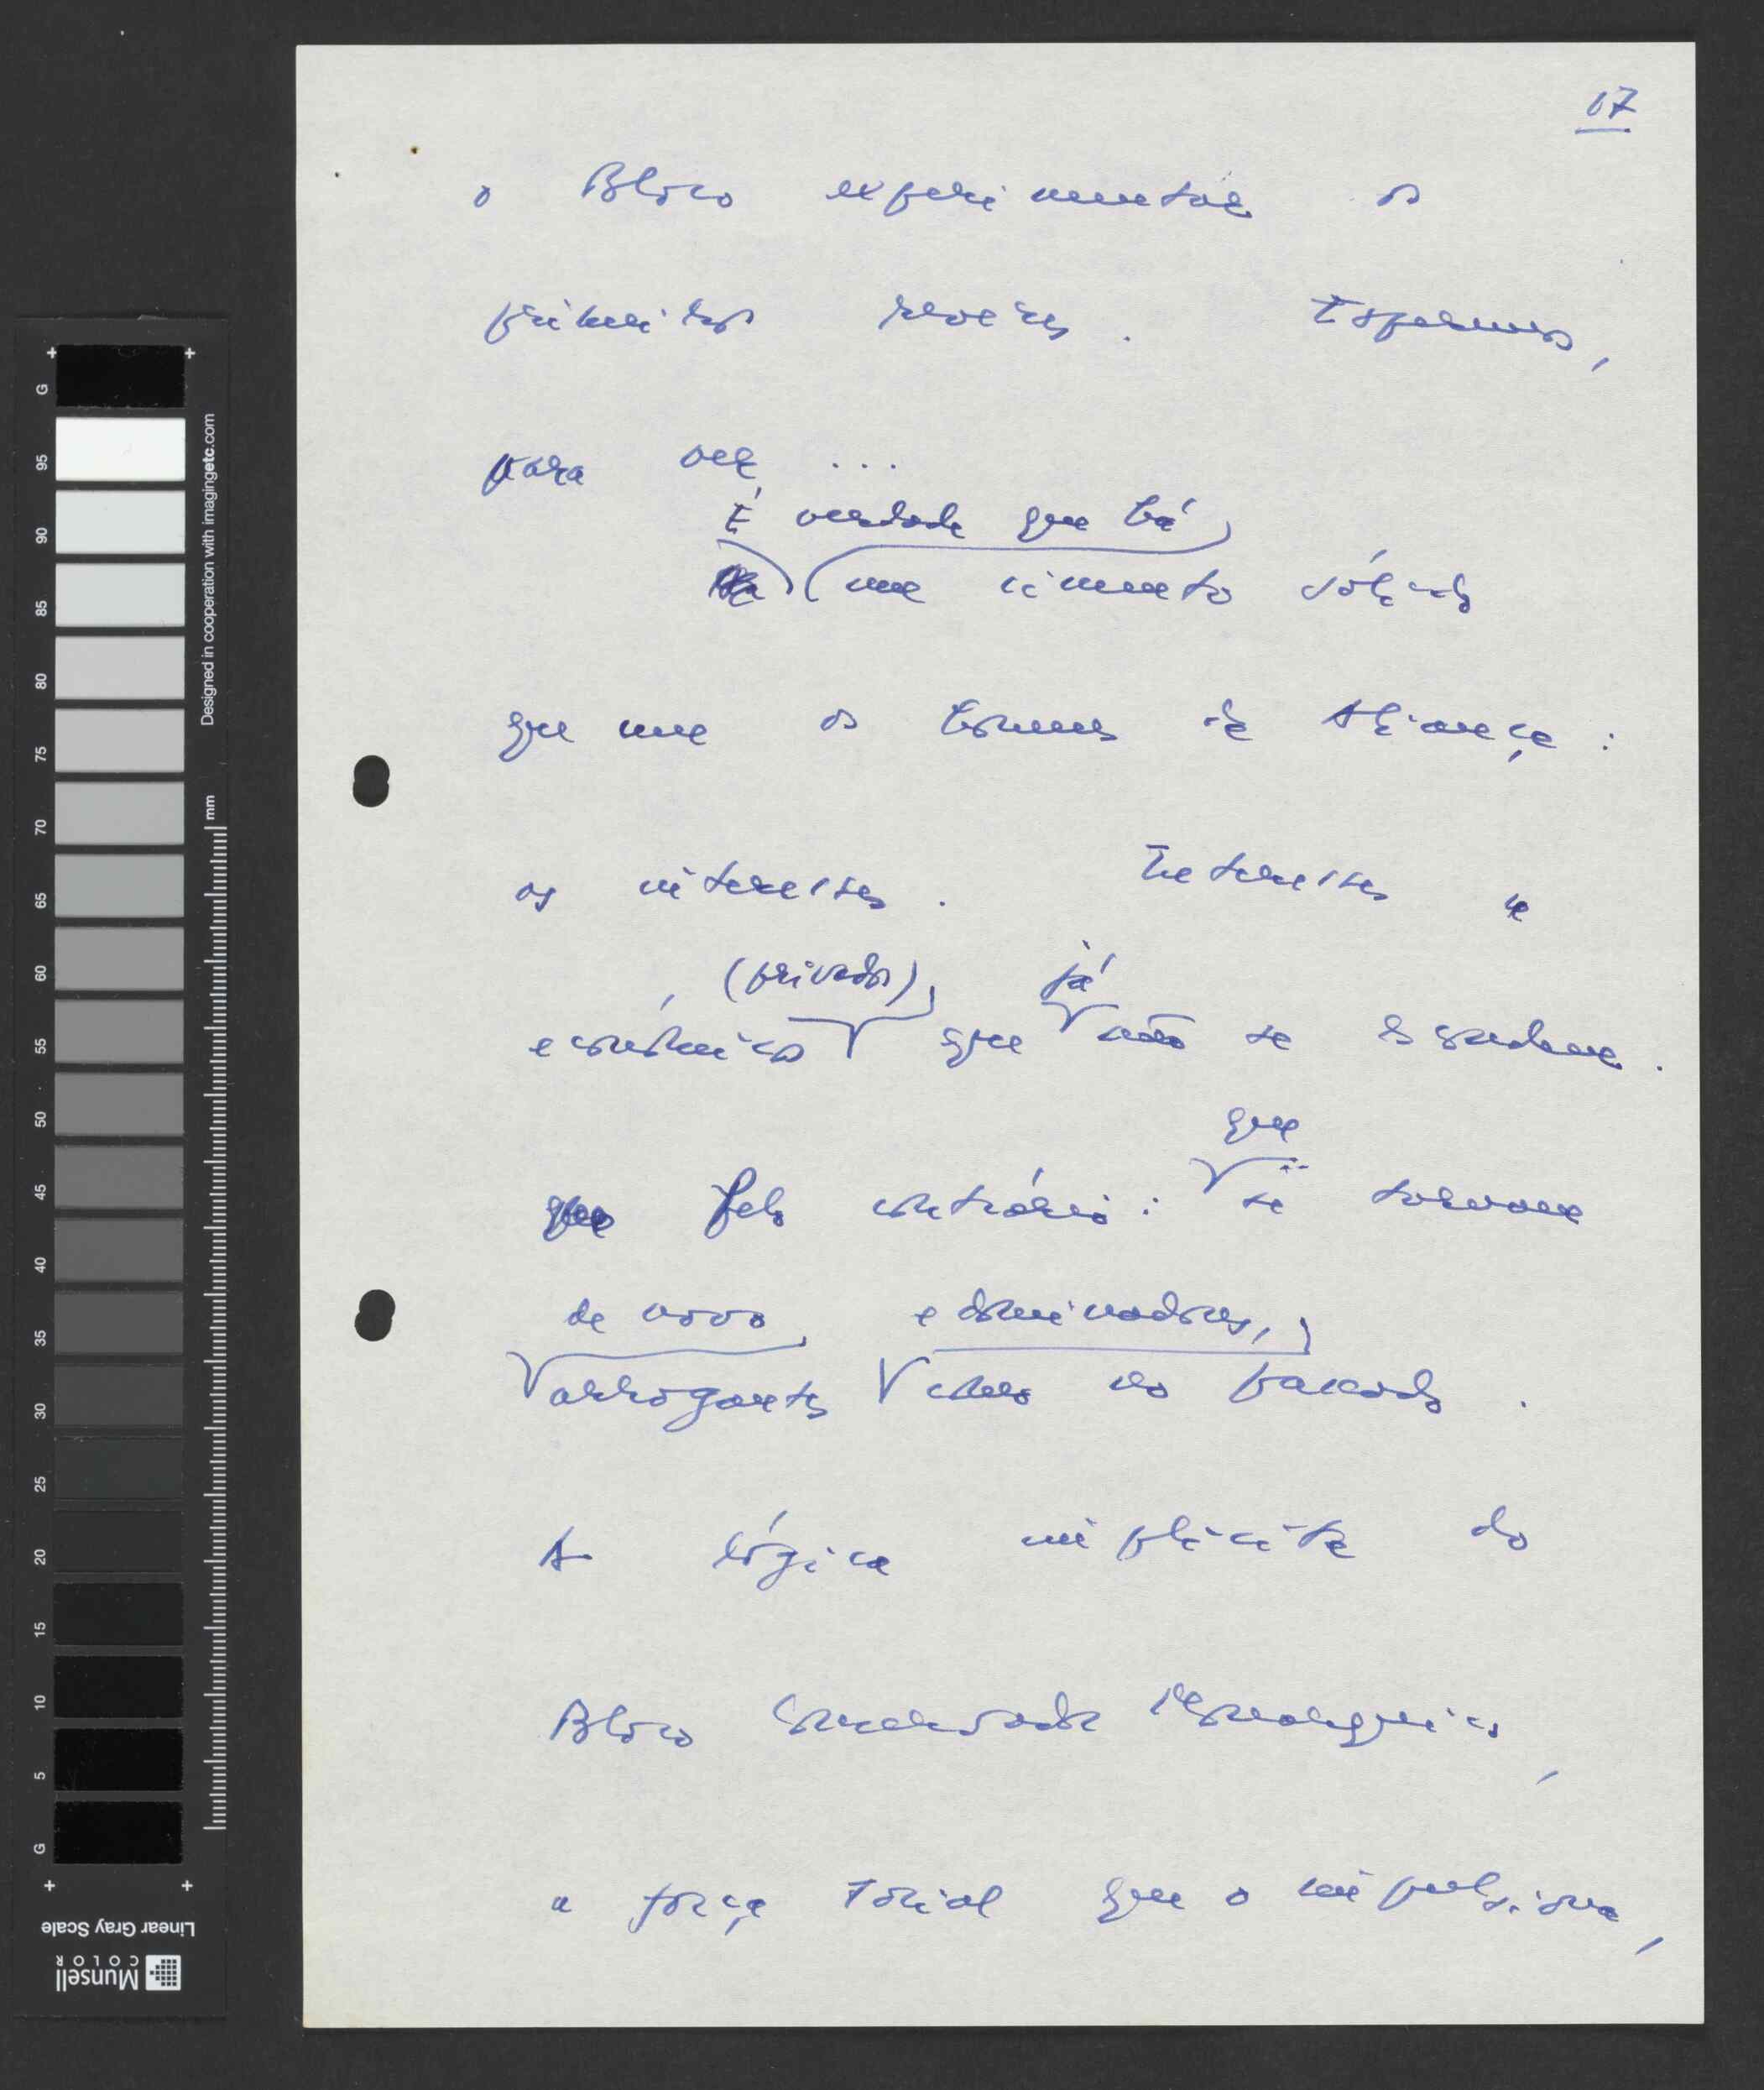 17
o Bloco experimentar os
primeiros revezes. Esperemos,
para ver ...
É verdade que há
um cimento sólido
que une os homens da Aliança:
os interesses. Interesses
(privados) já
económicos que não se escondem.
que
Pelo contrário: se tornam
de novo e dominadores,
arrogantes como no passado.
A lógica implícita do
Bloco Conservador Monárquico,
a força social que o impulsiona,
95
90
85
80
75
70
65
60
55
50
45
40
35
30
25
20
15
10
5
G
G
mm
Designed in cooperation with imagingetc.com
Linear Gray Scale
Munsell
COLOR